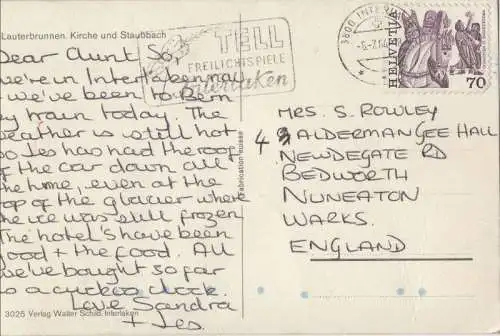 Lauterbrunnen. Kirche und Staubbach
Dear Aunt So,
We're in Interlaken now
& we've been to Bern
by train today. The
weather is still hot
so Les has had the roof
of the car down all
the time, even at the
top of the glacier where
the ice was still frozen
The hotels have been
good + the food. All
we've bought so far
is a cuckoo clock.
Love Sandra
+ Les.
3025 Verlag Walter Schild, Interlaken
Fabrication suisse
TELL
FREILICHTSPIELE
Interlaken
3800 INTERL
HELVETIA
70
MRS. S. ROWLEY
4 ALDERMAN GEE HALL
NEWDEGATE RD
BEDWORTH
NUNEATON
WARKS.
ENGLAND